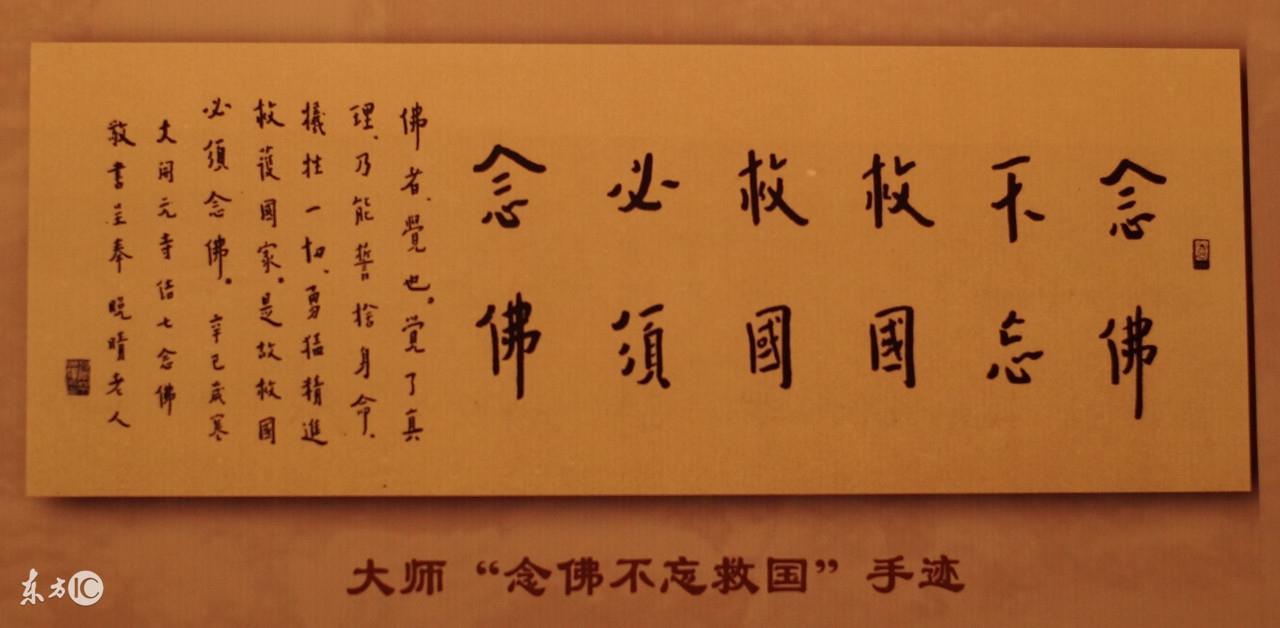 念佛
不忘
救國
救國
必須
念佛
佛者、覺也。覺了真
理、乃能誓捨身命、
犧牲一切、勇猛精進
救護國家。是故救國
必須念佛。辛巳歲寒
大開元寺結七念佛
敬書呈奉 晚晴老人
大师“念佛不忘救国”手迹
东方IC